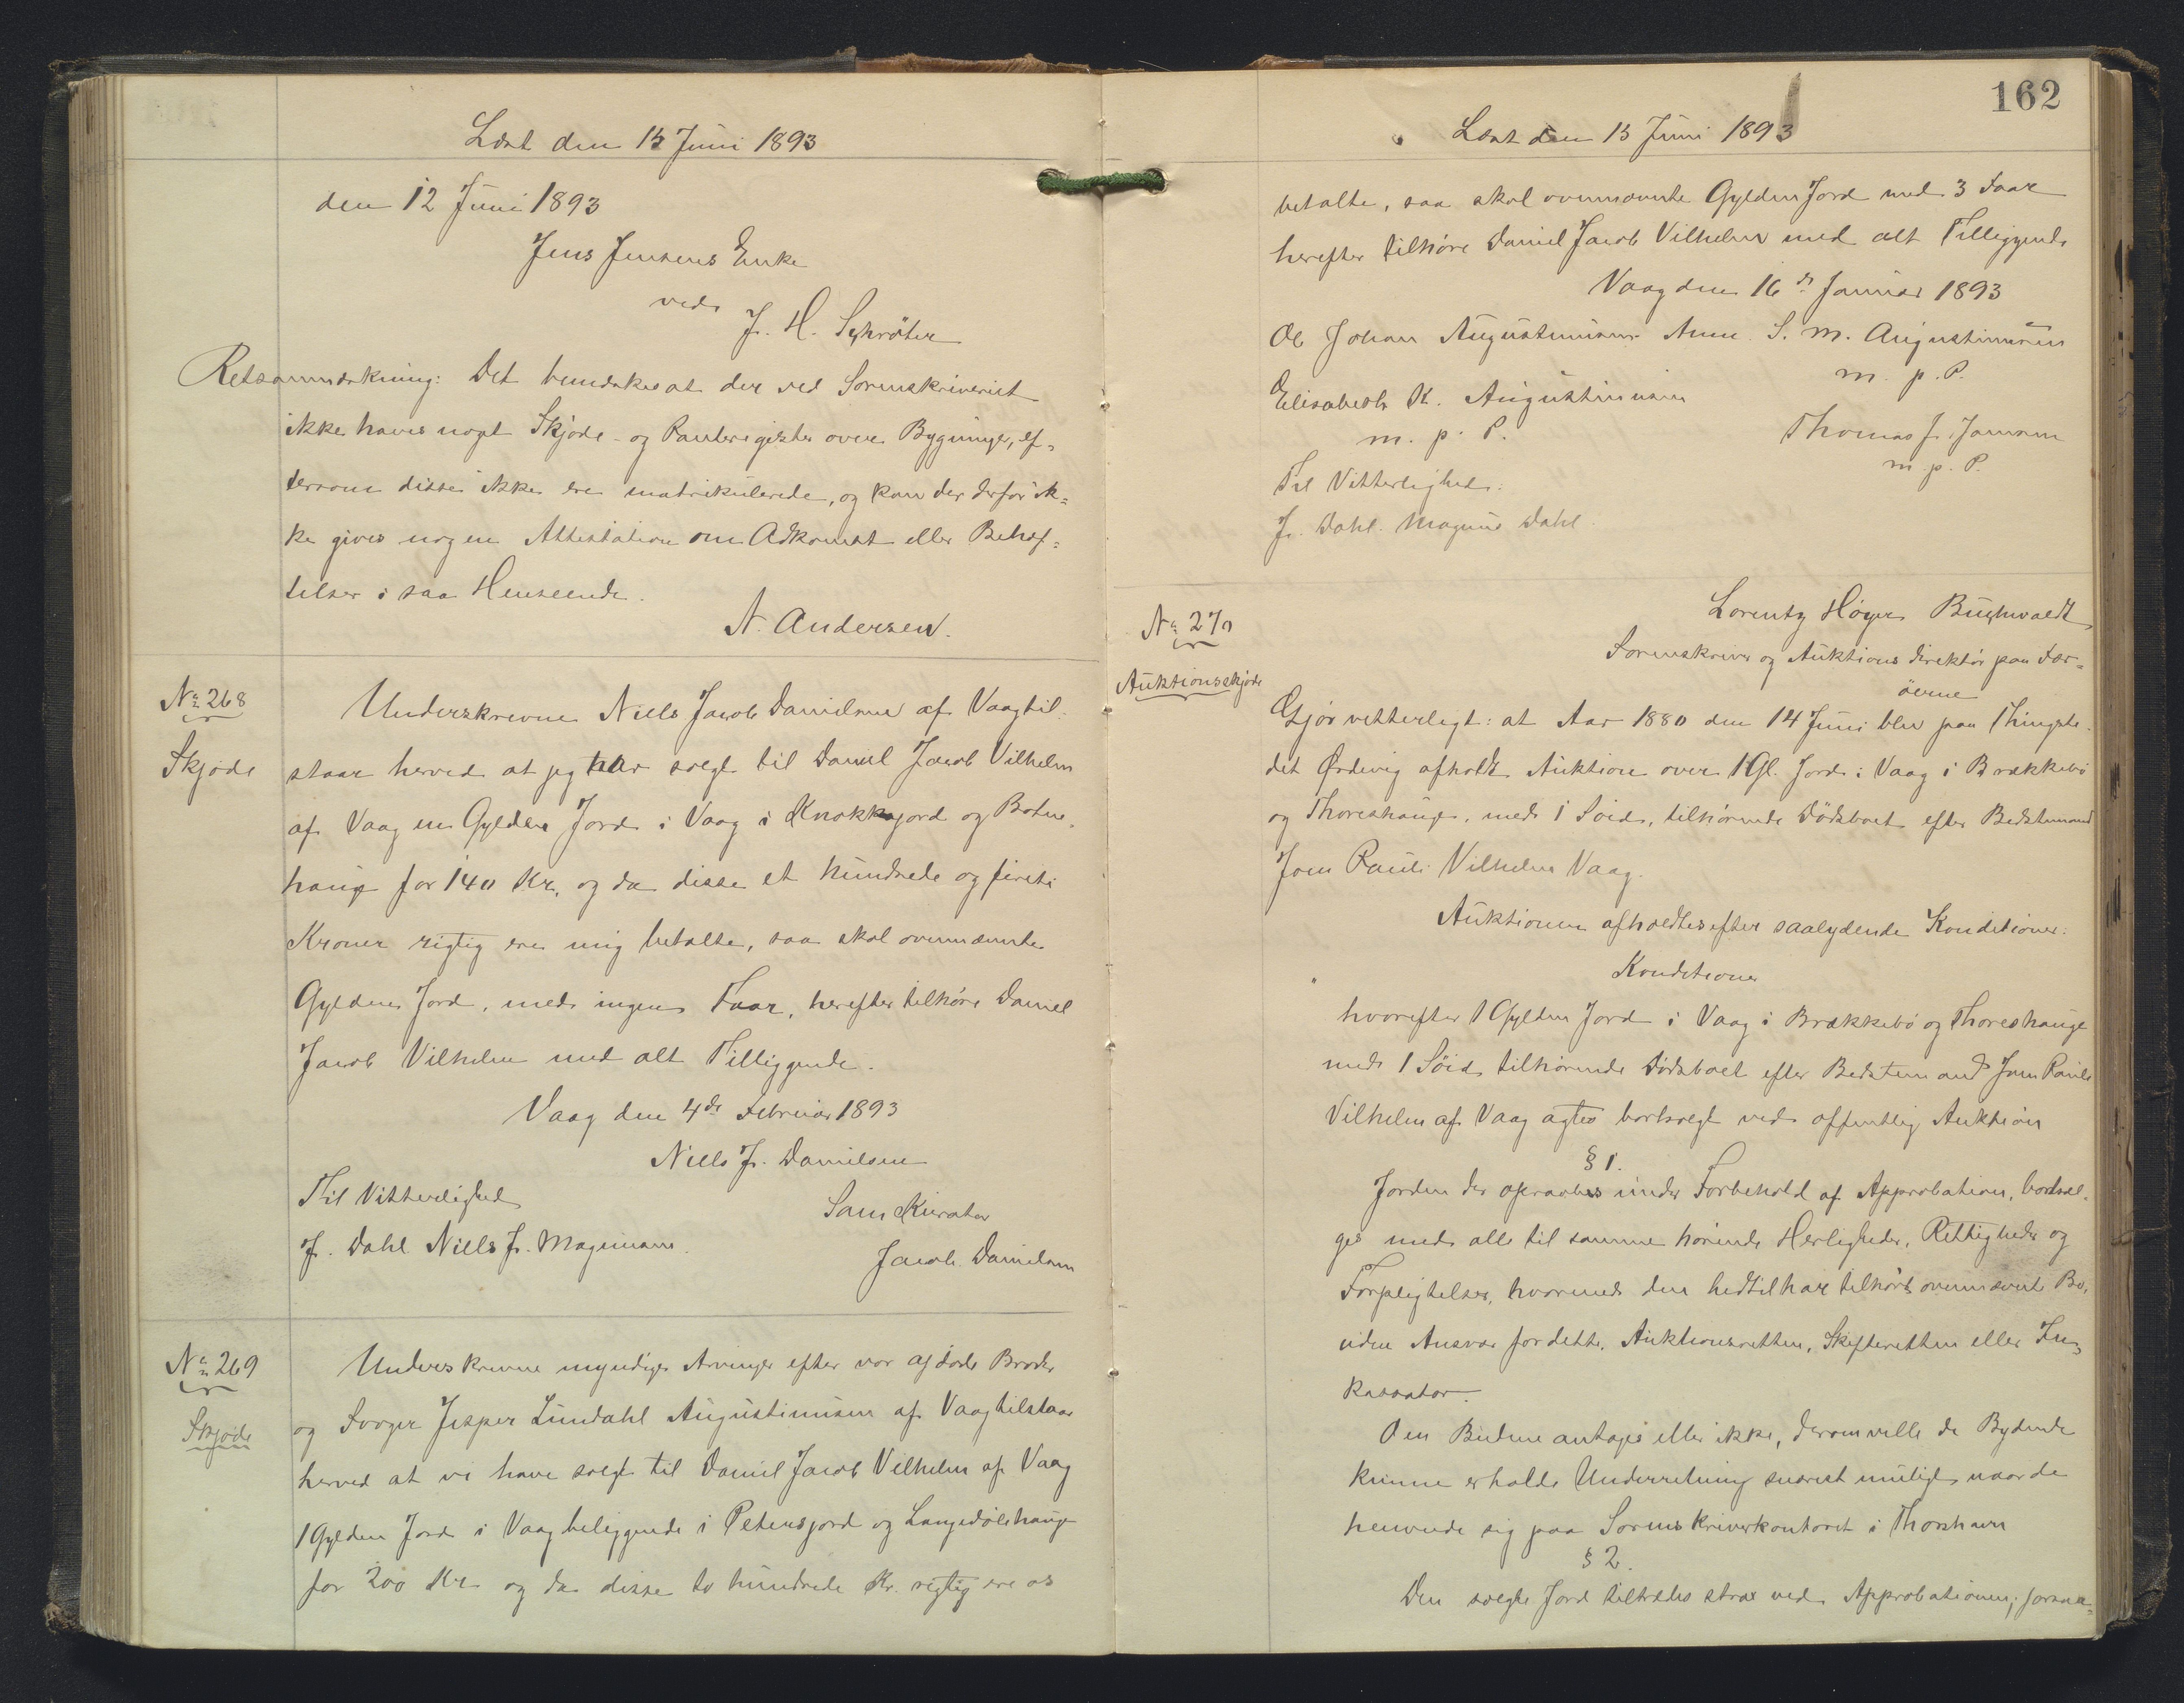 Læst den 15 Juni 1893
den 12 Juni 1893
Jens Jensens Enke
ved
J. H. Schrøter
Retsanmærkning: Det bemærkes at der ved Sorenskriveriet
ikke haves noget Skjøde- og Panteregister over Bygninger, ef-
tersom disse ikke ere matrikulerede, og kan der derfor ik=
ke gives nogen Attestation om Adkomst eller Behæf=
telser i saa Henseende.
N. Andersen.
No 268
Skjøde
Underskrevne Niels Jacob Danielsen af Vaag til-
staar herved at jeg har solgt til Daniel Jacob Vilhelm
af Vaag en Gylden Jord i Vaag i Knokkagjord og Botne-
hauge for 140 Kr. og da disse et hundrede og fireti
Kroner rigtig ere mig betalte, saa skal ovennævnte
Gylden Jord, med ingen Faar, herefter tilhøre Daniel
Jacob Vilhelm med alt Tilliggende.
Vaag den 4de Februar 1893
Niels J. Danielsen
Til Vitterlighed
Som Kurator
J. Dahl Niels J. Magnussen.
Jacob Danielsen
No 269
Skjøde
Underskrevne myndige Arvinger efter vor afdøde Broder
og Svoger Jesper Lundahl Augustinusen af Vaag tilstaar
herved at vi have solgt til Daniel Jacob Vilhelm af Vaag
1 Gylden Jord i Vaag beliggende i Petersgjord og Langedølehauge
for 200 Kr. og da disse to hundrede Kr. rigtig ere os
162
Læst den 15 Juni 1893
betalte, saa skal ovennævnte Gylden Jord med 3 Faar
herefter tilhøre Daniel Jacob Vilhelm med alt Tilliggende
Vaag den 16de Januar 1893
Ole Johan Augustinusen Anne S. M. Augustinusen
m. p. P.
Elisabeth K. Augustinusen
m. p. P.
Thomas J. Joensen
m. p. P.
Til Vitterlighed:
J. Dahl. Magnus Dahl.
No 270
Auktionsskjøde
Lorentz Høyer Buchwaldt
Sorenskriver og Auktionsdirektør paa Fær-
øerne
Gjør vitterligt: at Aar 1880 den 14 Juni blev paa Thingste-
det Ørdevig afholdt Auktion over 1 Gl. Jord i Vaag i Brækkebø
og Thoreshauge, med 1 Søid, tilhørende Dødsboet efter Bedstemand
Joen Pauli Vilhelm Vaag.
Auktionen afholdtes efter saalydende Konditioner:
Konditioner
hvorefter 1 Gylden Jord i Vaag i Brækkebø og Thoreshauge
med 1 Søid tilhørende Dødsboet efter Bedstemand Joen Pauli
Vilhelm af Vaag agtes bortsolgt ved offentlig Auktion
§ 1.
Jorden der opraabes under Forbehold af Approbation, bortsæl-
ges med alle til samme hørende Herligheder, Rettigheder og
Forpligtelser, hvormed den hedtil har tilhørt ovennævnte Bo,
uden Ansvar for dette, Auktionsretten, Skifteretten eller In-
kassator.
Om Budene antages eller ikke, derom ville de Bydende
kunne erholde Underretning snarest muligt, naar de
henvende sig paa Sorenskriverkontoret i Thorshavn
§ 2.
Den solgte Jord tiltrædes strax ved Approbationen, forsaa-